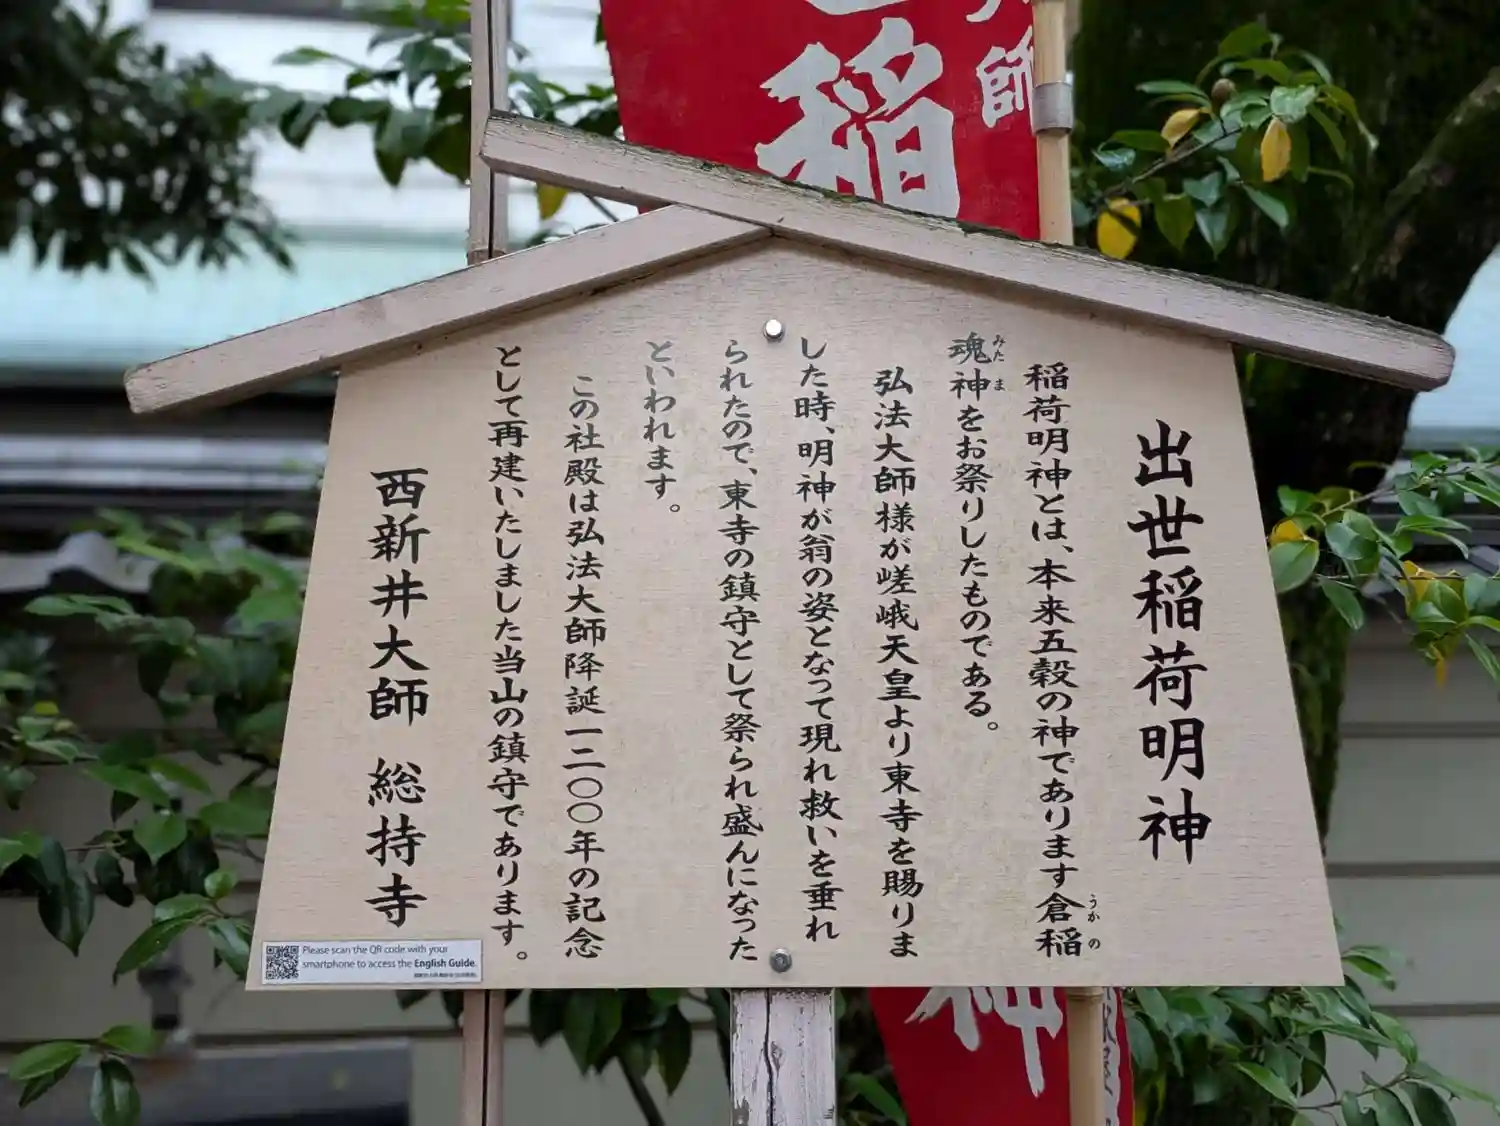 稲
師
出世稲荷明神
稲荷明神とは、本来五穀の神であります倉稲
うかの
魂神をお祭りしたものである。
みたま
弘法大師様が嵯峨天皇より東寺を賜りま
した時、明神が翁の姿となって現れ救いを垂れ
られたので、東寺の鎮守として祭られ盛んになった
といわれます。
この社殿は弘法大師降誕一二〇〇年の記念
として再建いたしました当山の鎮守であります。
西新井大師 総持寺
Please scan the QR code with your
smartphone to access the English Guide.
神